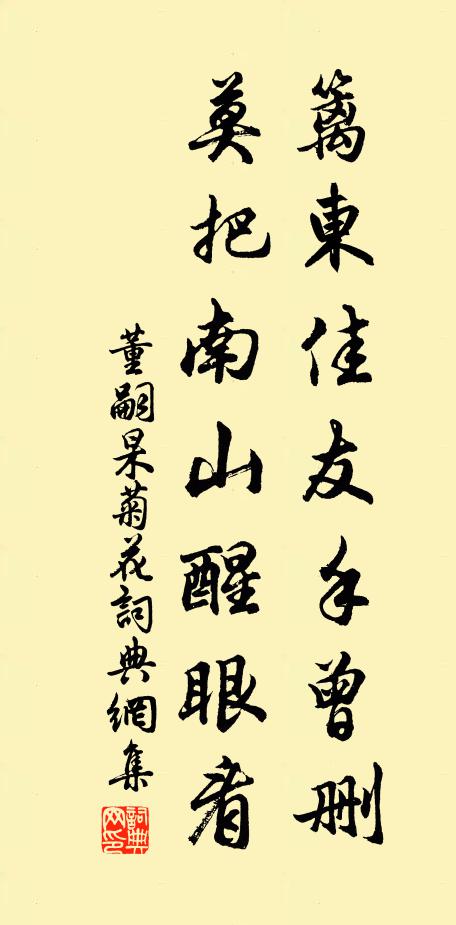 籬東佳友手曾刪
莫把南山醒眼看
董嗣杲菊花詞典網集
詞典网印